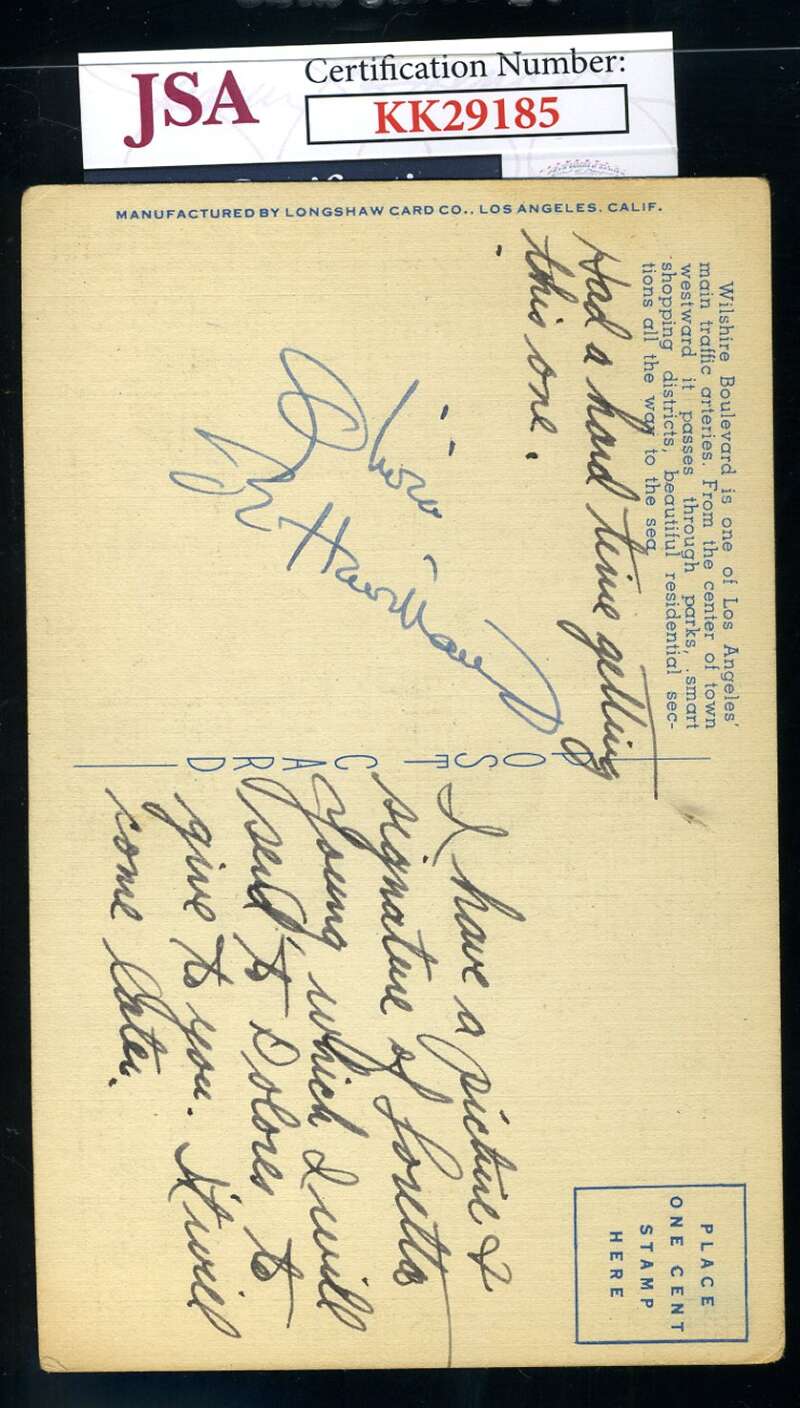 JSA
Certification Number:
KK29185
MANUFACTURED BY LONGSHAW CARD CO., LOS ANGELES. CALIF.
Wilshire Boulevard is one of Los Angeles'
main traffic arteries. From the center of town
westward it passes through parks, smart
shopping districts, beautiful residential sec-
tions all the way to the sea
Had a hard time getting
this one.
Olivia
De Havilland
POST CARD
I have a picture &
signature of Loretta
Young which I will
send to Dolores to
give to you. It will
come later.
PLACE
ONE CENT
STAMP
HERE